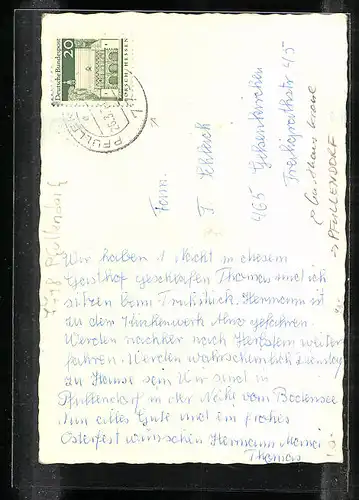 Deutsche Bundespost
20
LORSCH / HESSEN
PFULLEN
Fam.
T
465 Gelsenkirchen
45
Gasthaus Krone
→ PFULLENDORF
7798 Pfullendorf
Wir haben 1 Nacht in diesem
Gasthof geschlafen Thomas und ich
sitzen beim Frühstück. Hermann ist
zu dem Küchenwerk Alno gefahren.
Werden nachher nach Herbstein weiter
fahren. Werden wahrscheinlich Dienstag
zu Hause sein. Wir sind in
Pfullendorf in der Nähe vom Bodensee
Nun alles Gute und ein frohes
Osterfest wünschen Hermann
Thomas